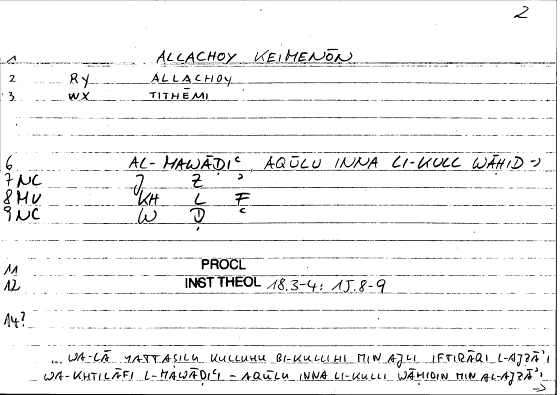 2
1 ALLACHOY KEIMENŌN
2 RY ALLACHOY
3 WX TITHĒMI
6 AL-MAWĀḌIʿ AQŪLU INNA LI-KULL WĀḤID →
7 NC J Z ʾ
8 MV KH L F
9 NC W Ḍ ʿ
11 PROCL
12 INST THEOL 18.3-4: 15.8-9
14?
... WA-LĀ YATTAṢILU KULLUHU BI-KULLIHI MIN AJLI IFTIRĀQI L-AJZĀʾI
WA-KHTILĀFI L-MAWĀḌIʿI - AQŪLU INNA LI-KULLI WĀḤIDIN MIN AL-AJZĀʾI
→